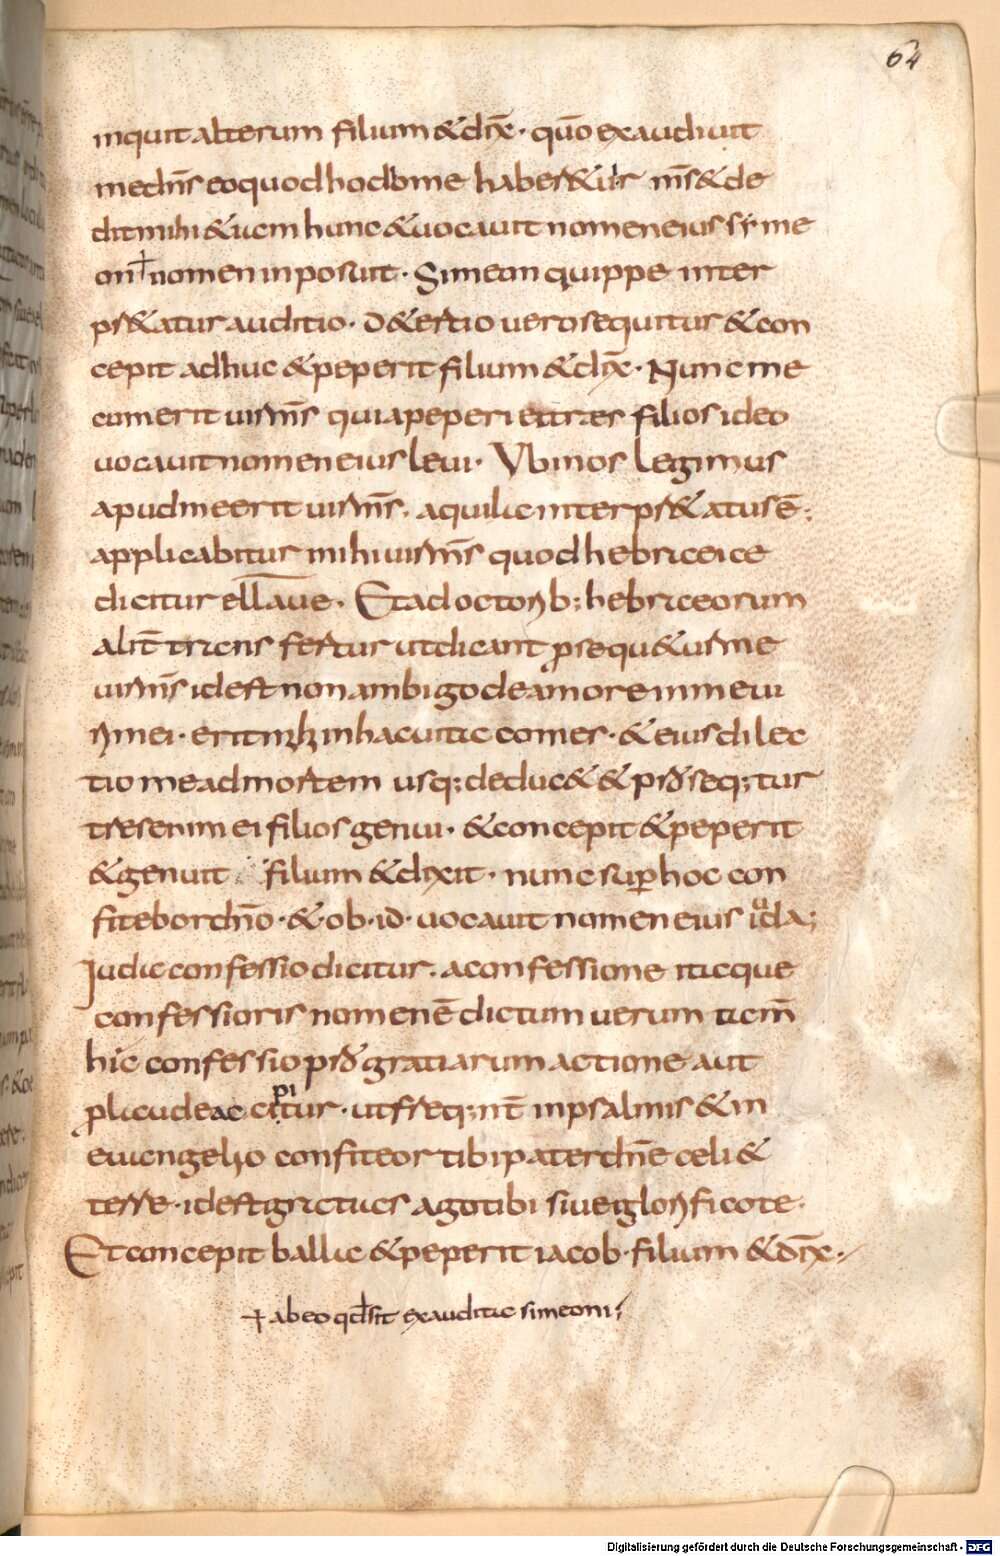 64
inquit alterum filium & dix̄· qūo exaudivit
me dn̄s eo quod hodbme haber& ur m̄s & de
dit mihi & iam hunc & vocavit nomen eius syme
on nomen inposuit· Simeon quippe inter
pr&atur auditio· D& ertio vero sequitur & con
cepit adhuc & peperit filium & dix̄· Nunc me
cum erit vir m̄s quia peperi ei tres filios ideo
vocavit nomen eius levi· Ubi nos legimus
apud me erit vir m̄s· aquila interpr&atus ē;
applicabitur mihi vir m̄s quod hebraice
dicitur ellaue· Et a doctorib; hebraeorum
alit̄ trans fertur ut dicant prosequ&ur me
vir m̄s id est non ambigo de amore in me vi
ri mei· erit m̄ in hac vita comes· & eius dilec
tio me ad mortem usq; deduc& & prosequ;tur
tres enim ei filios genui· & concepit & peperit
& genuit filium & dixit· nunc super hoc con
fitebor dn̄o· & ob· id· vocavit nomen eius iuda;
Iuda confessio dicitur· a confessione itaque
confessioris nomen ē dictum verum tam̄
hic confessio pro gratiarum actione aut
pro laude accipitur· ut freq;nt̄ in psalmis & in
euangelio confiteor tibi pater dn̄e celi &
terre· id est gratias ago tibi sive glorifico te·
Et concepit balla & peperit iacob· filium & dix̄·
abeo qd sit exaudita simeon;
Digitalisierung gefördert durch die Deutsche Forschungsgemeinschaft - DFG